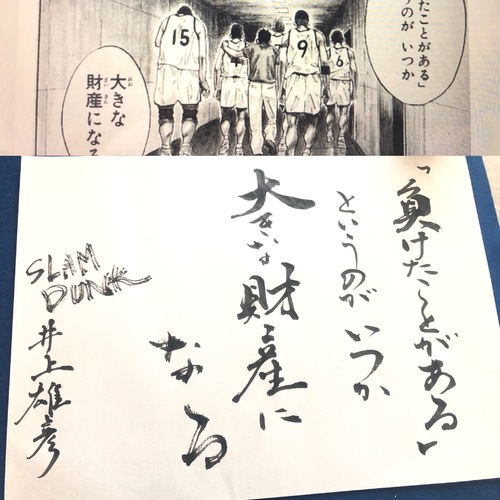 たことがある」
のが いつか
15
4
9
6
大きな
財産になる
「負けたことがある」
というのが いつか
大きな財産に
なる
SLAM
DUNK
井上雄彦